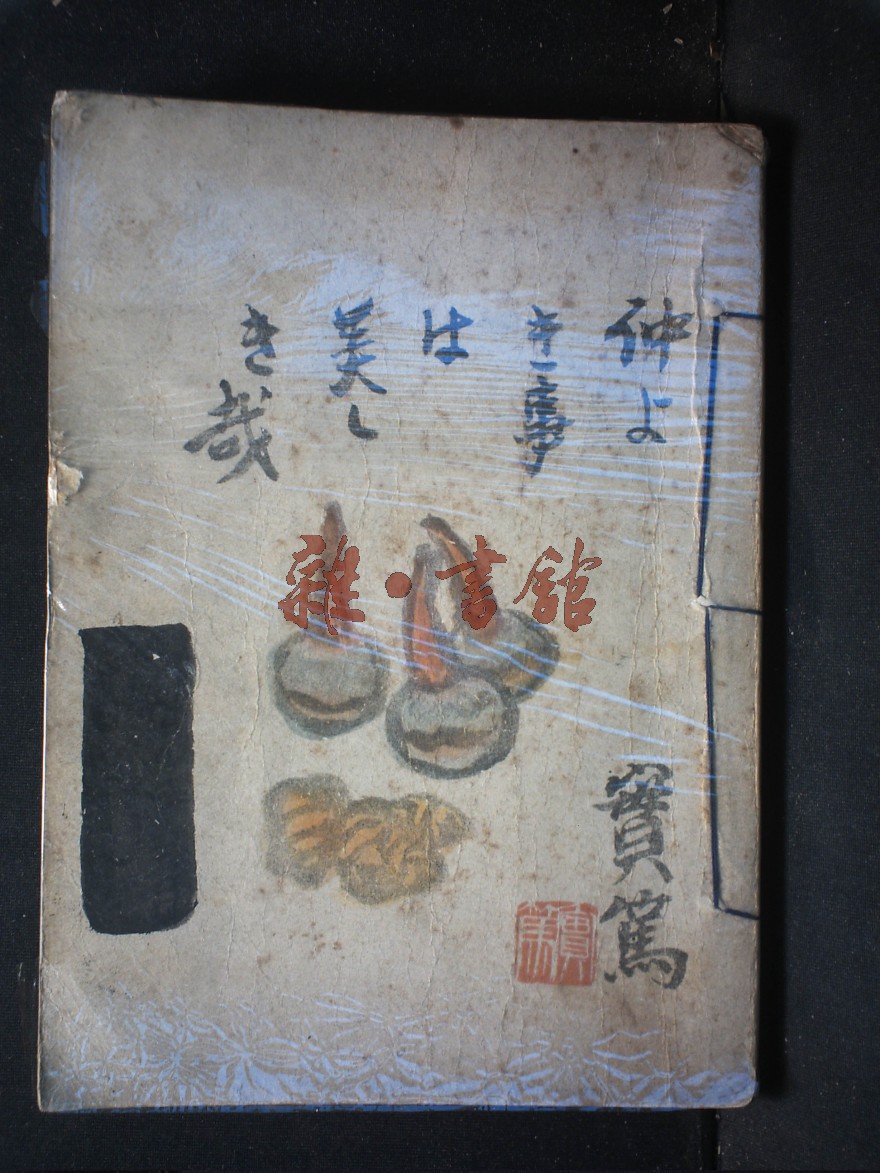 仲よ
き事
は
美し
き哉
實篤
實篤
雜·書館